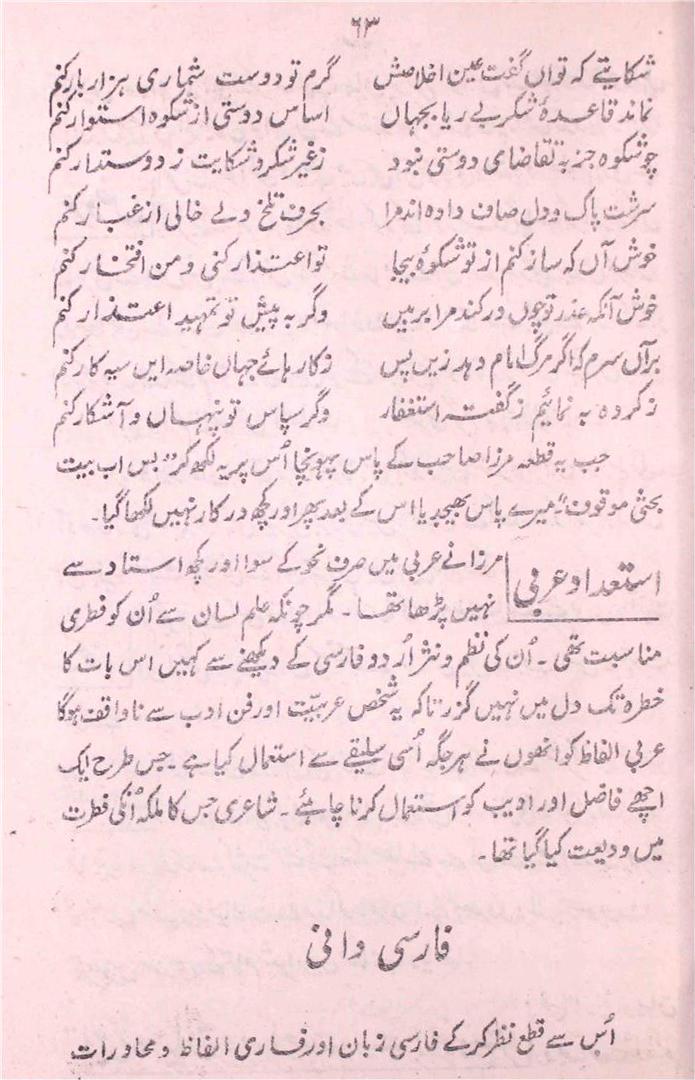 ۶۳
شکایتے کہ تواں گفت عین اخلاصش گرم تو دوست شماری ہزار بار کنم
نماند قاعدۂ شکر بے ریا بجہاں اساس دوستی از شکوہ استوار کنم
چو شکوہ جز بہ تقاضای دوستی نبود ز غیر شکر و شکایت ز دوستدار کنم
سرشت پاک و دل صاف دادہ اند مرا بحرف تلخ دلے خالی از غبار کنم
خوش آں کہ ساز کنم از تو شکوۂ بیجا تو اعتذار کنی و من افتخار کنم
خوش آنکہ عذر تو چوں در کند مرا برہیں وگر بہ پیش تو تمہید اعتذار کنم
برآں سرم کہ اگر مرگ امام دہد زیں پس ز کارہائے جہاں خاصہ ایں سیہ کار کنم
ز کردہ بہ نمائیم ز گفتہ استغفار وگر سپاس تو پنہاں و آشکار کنم
جب یہ قطعہ مرزا صاحب کے پاس پہونچا اُس پر یہ لکھ کر "بس اب بیت
بحثی موقوف" میرے پاس بھیجدیا اس کے بعد پھر اور کچھ درکار نہیں لکھا گیا۔
استعداد عربی
مرزا نے عربی میں صرف نحو کے سوا اور کچھ استاد سے
نہیں پڑھا تھا۔ مگر چونکہ علم لسان سے اُن کو فطری
مناسبت تھی۔ اُن کی نظم و نثر اُردو فارسی کے دیکھنے سے کہیں اس بات کا
خطرہ تک دل میں نہیں گزرتا کہ یہ شخص عربیّت اور فن ادب سے ناواقف ہوگا
عربی الفاظ کو انھوں نے ہر جگہ اُسی سلیقے سے استعمال کیا ہے۔ جس طرح ایک
اچھے فاضل اور ادیب کو استعمال کرنا چاہئے۔ شاعری جس کا ملکہ اُنکی فطرت
میں ودیعت کیا گیا تھا۔
فارسی دانی
اُس سے قطع نظر کر کے فارسی زبان اور فارسی الفاظ و محاورات